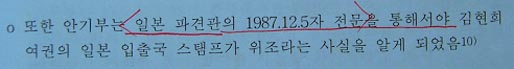 o 또한 안기부는 일본 파견관의 1987.12.5자 전문을 통해서야 김현희
여권의 일본 입출국 스탬프가 위조라는 사실을 알게 되었음10)